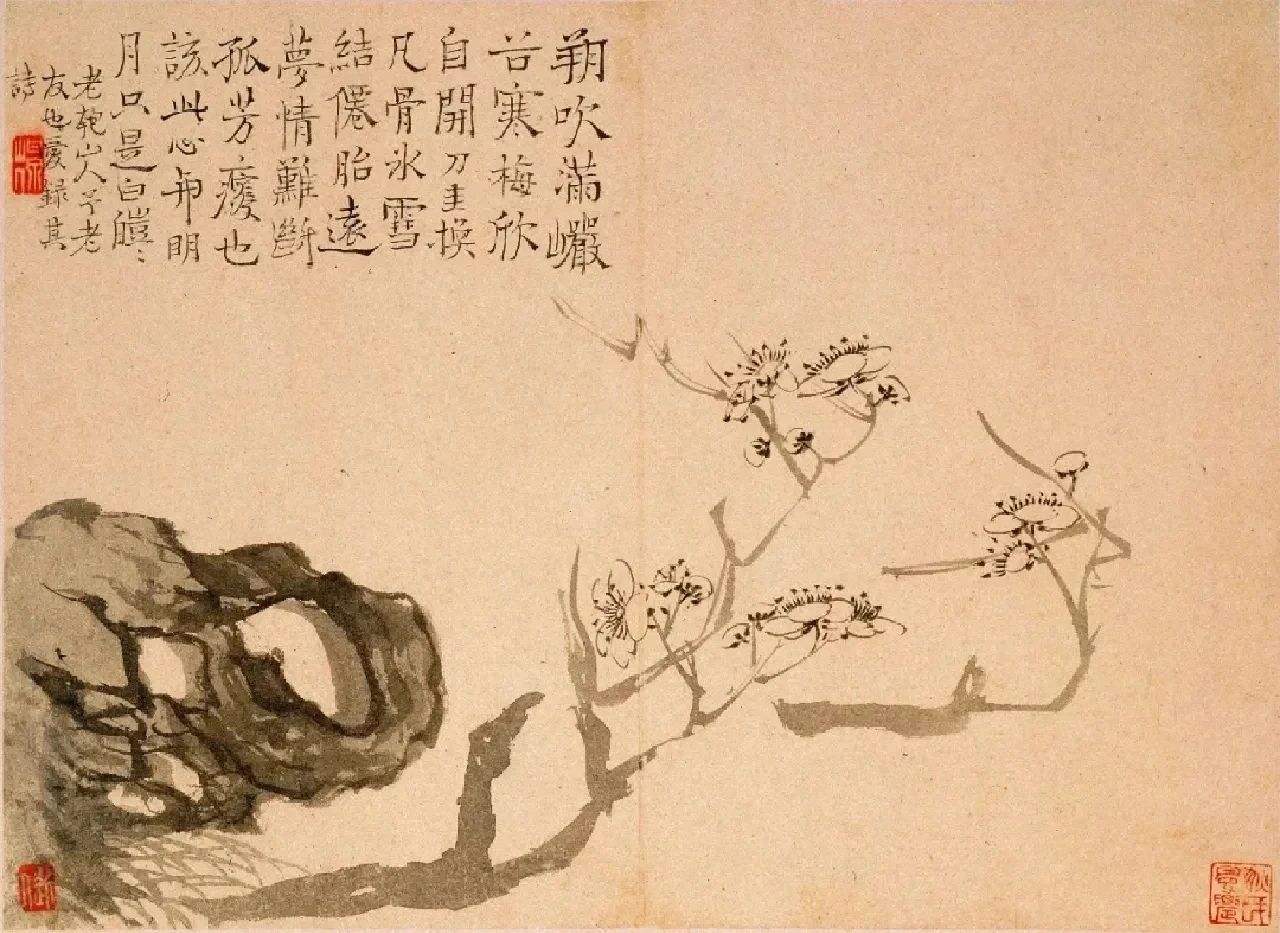 朔吹滿巖
谷寒梅欣
自開刀圭換
凡骨氷雪
結僊胎遠
夢情難斷
孤芳瘦也
該此心明
月只是白皚〻
老匏山人予老
友也愛錄其
詩